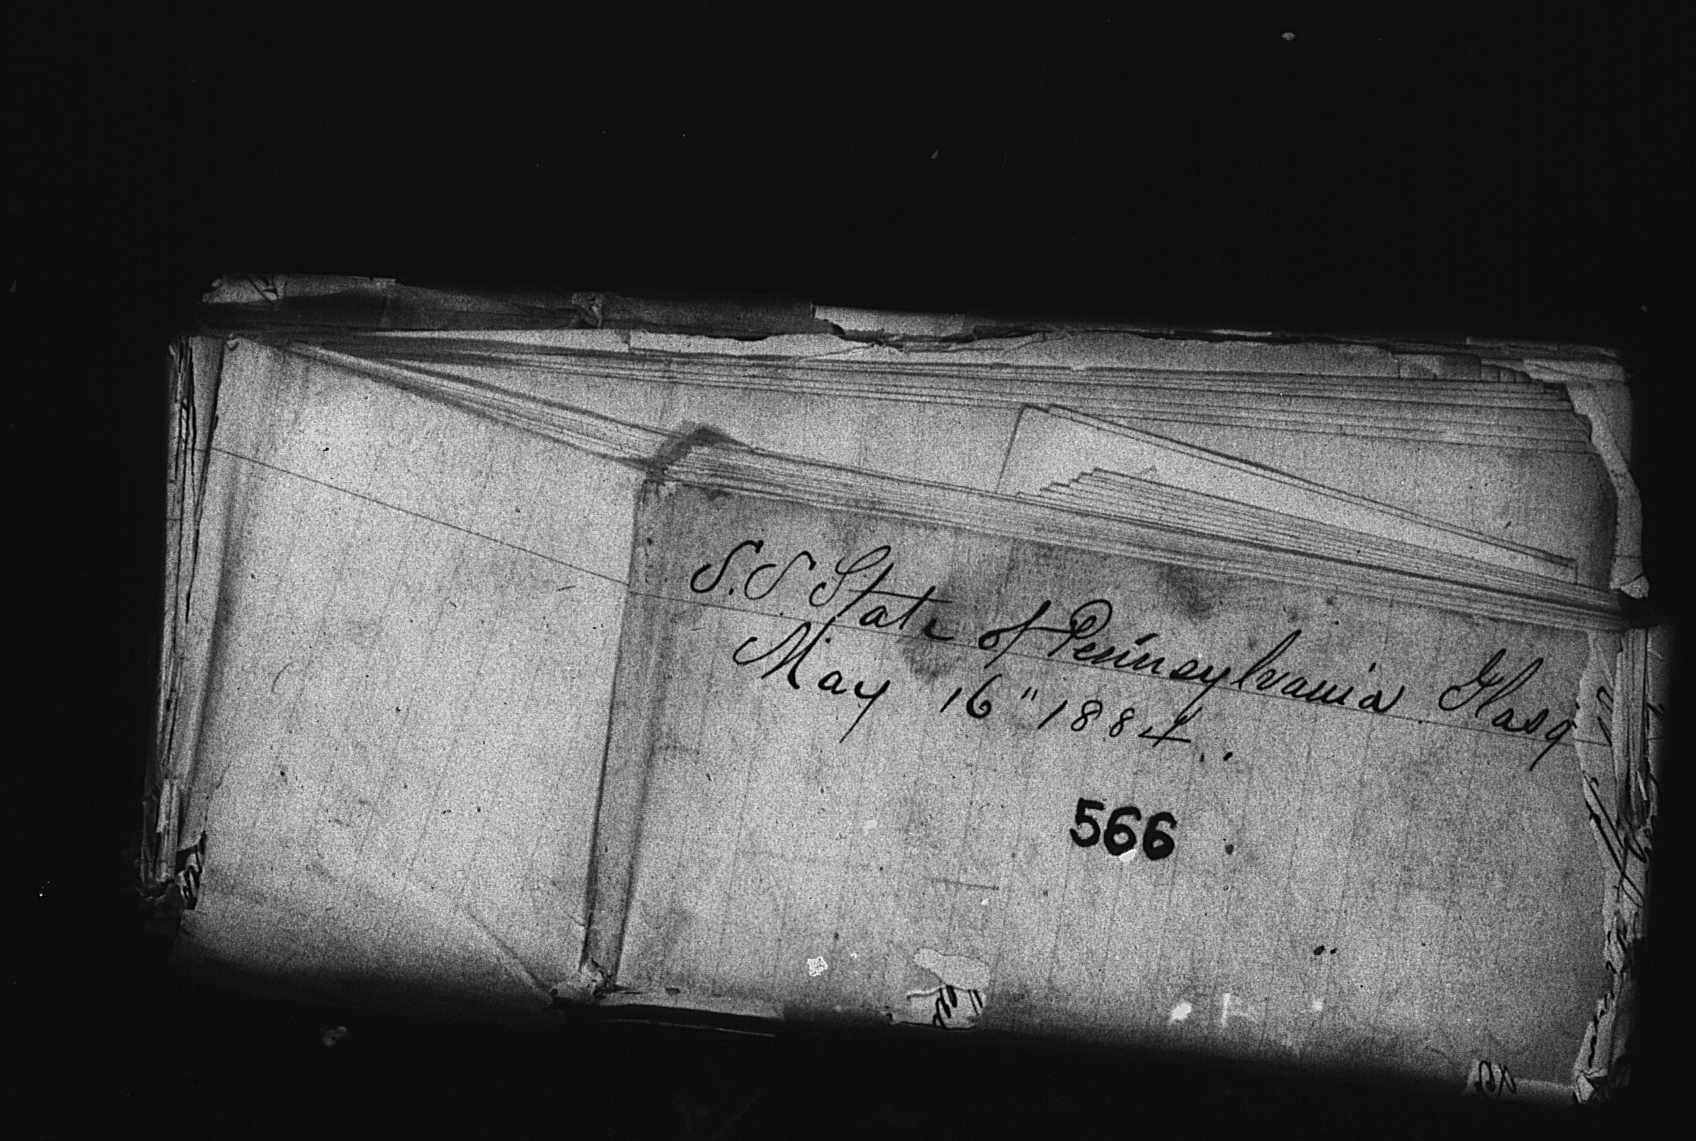 S.S. State of Pennsylvania Glasg
May 16" 1884.
566